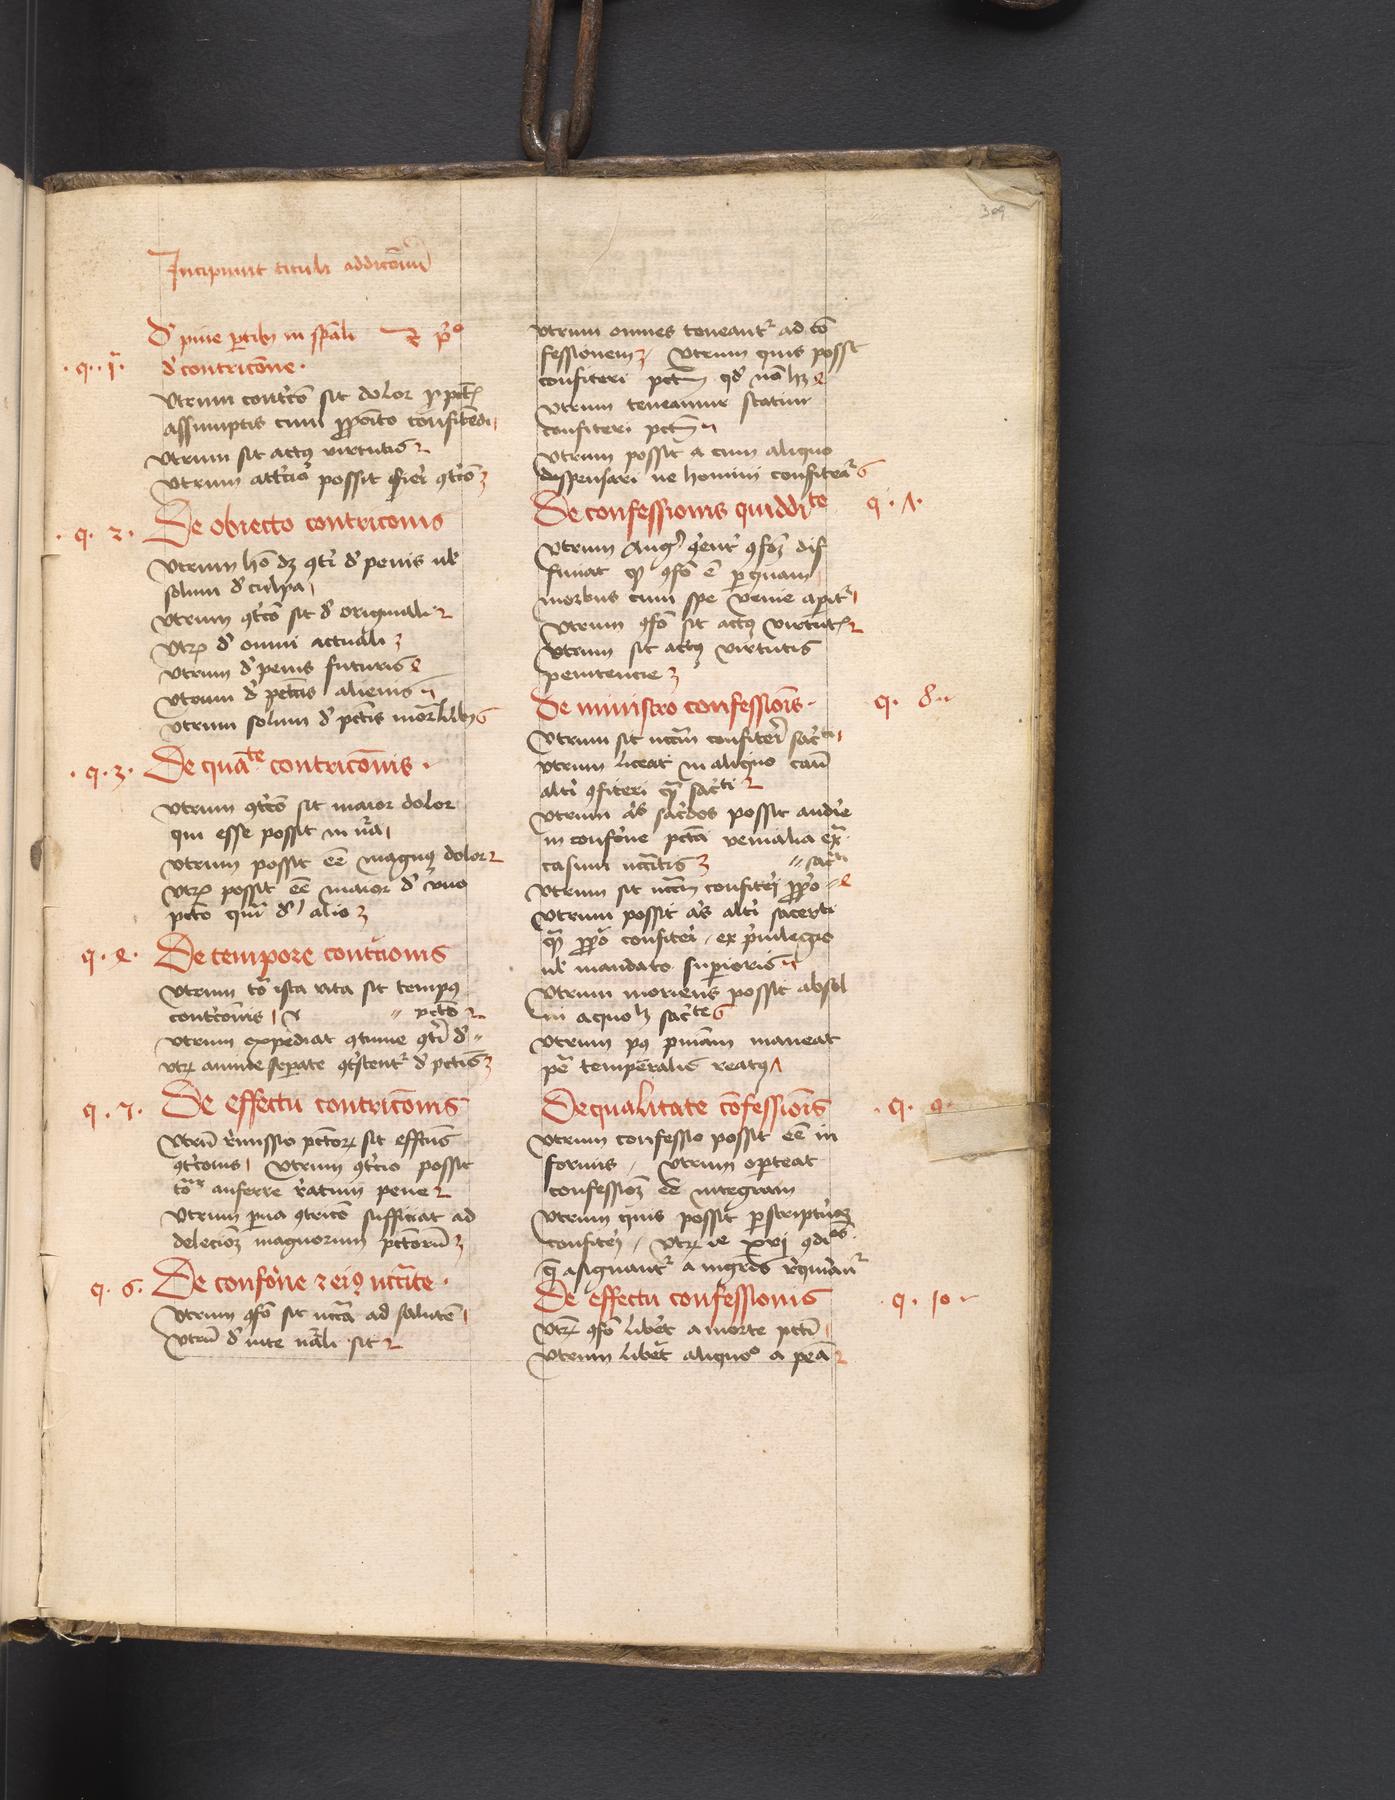 309
Incipiunt tituli addicōnū
d' pnīe ptib9 in spāli et p°
.q. 1ª. d' contricōne.
Utrum contᵉcō sit dolor p pctīs
assumptis cum ꝓpōito confitēdi 1
Utrum sit actꝰ virtutis 2
Utrum attᵉciō possit fieri ꝯtᵉcō 3
.q. 2. De obiecto contricōnis
Utrum hō dꝫ ꝯtᵉi d' penis ul'
solum d' culpa 1
Utrum ꝯtᵉcō sit d' originali 2
Utrꝫ d' omni actuali 3
Utrum d' penis futuris 4
Utrum d' pctīs alienis 5
Utrum solum d' pctīs mortalib9 6
.q. 3. De quāᵗᵉ contricōnis.
Utrum ꝯtᵉcō sit maior dolor
qui esse possit in nrā 1
Utrum possit eē magnꝰ dolor 2
Utrꝫ possit eē maior d' uno
pctō quā d' alio 3
q. 4. De tempore contᵉcionis
Utrum tō ista vita sit tempꝰ
contᵉcōnis 1 // pctō 2
Utrum expediat ꝯtinue ꝯtᵉi d' //
Utrꝫ anime sepate ꝯtᵉstentʳ d' pctīs 3
q. 5. De effectu contricōnis
Utrū remissio pctōrꝫ sit effctūs
ꝯtᵉcōnis 1 Utrum ꝯtᵉcio possit
tōʳ auferre reatum pene 2
Utrum pua ꝯtricō sufficiat ad
delecioꝫ magnorum pctōrū 3
q. 6. De confōne et eiꝰ ncctāte.
Utrum ꝯfō sit nccīa ad salutē 1
Utrū d' iure nāli sit 2
Utrum omnes teneantʳ ad cō
fessionem 3 Utrum quis possit
confiteri pctm qd' nō hꝫ 4
Utrum teneamur statim
confiteri pctm 5
Utrum possit a cum aliquo
dispensari ne homini confiteatʳ 6
De confessionis quiddiᵗᵉ q. 7.
Utrum Augꝰ ꝯuent' ꝯfoꝫ dif
finiat qꝫ ꝯfō ē p quam
morbus cum spe venie apitʳ 1
Utrum ꝯfō sit actꝰ virtutis 2
Utrum sit actꝰ virtutis
penitencie 3
De ministro confessiōis. q. 8.
Utrum sit nccīm confiteri sacᵗⁱ 1
Utrum liceat in aliquo casu
alti ꝯfiteri quā sacᵗⁱ 2
Utrum als sacdos possit audire
in confōne pctā venialia exᵃ
casum nccītis 3 // sacᵗⁱ
Utrum sit nccīm confiteri ꝓpᵒ // 4
Utrum possit als alti sacerti
quā ꝓpᵒ confiteri ex pᵢuilegio
ul' mandato supioris 5
Utrum moriens possit absol
ui a quolꝫ sacᵗᵉ 6
Utrum pꝰ pniam maneat
pā temporalis reatꝰ 7
De qualitate cōfessiōis .q. 9.
Utrum confessio possit eē in
formis / Utrum oporteat
confessioꝫ eē integram
Utrum quis possit p scripturaꝫ
confiteri / Utrꝫ ille xvj ꝯdiōes
que asignantʳ a mgrīs requirantʳ
De effectu confessionis .q. 10
Utrꝫ ꝯfō liberet a morte pctī 1
Utrum liberet aliquō a penā 2